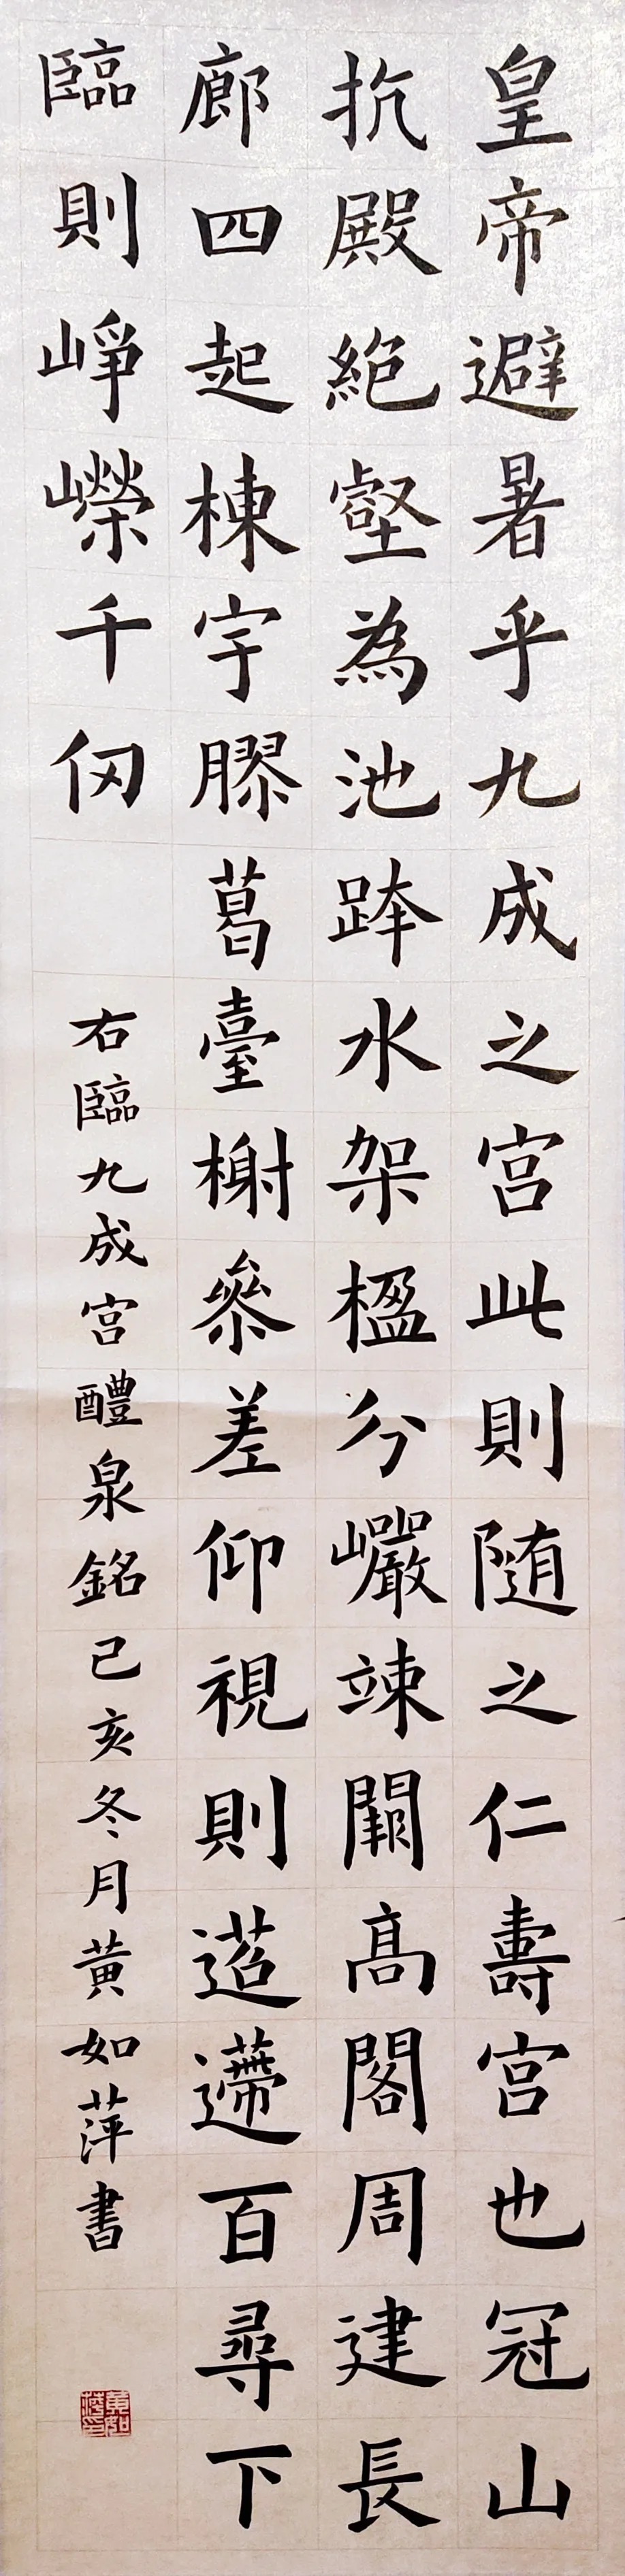 皇帝避暑乎九成之宮此則随之仁壽宮也冠山
抗殿絶壑為池跨水架楹分巖竦闕高閣周建長
廊四起棟宇膠葛臺榭參差仰視則迢遰百尋下
臨則崢嶸千仞
右臨九成宮醴泉銘己亥冬月黄如萍書